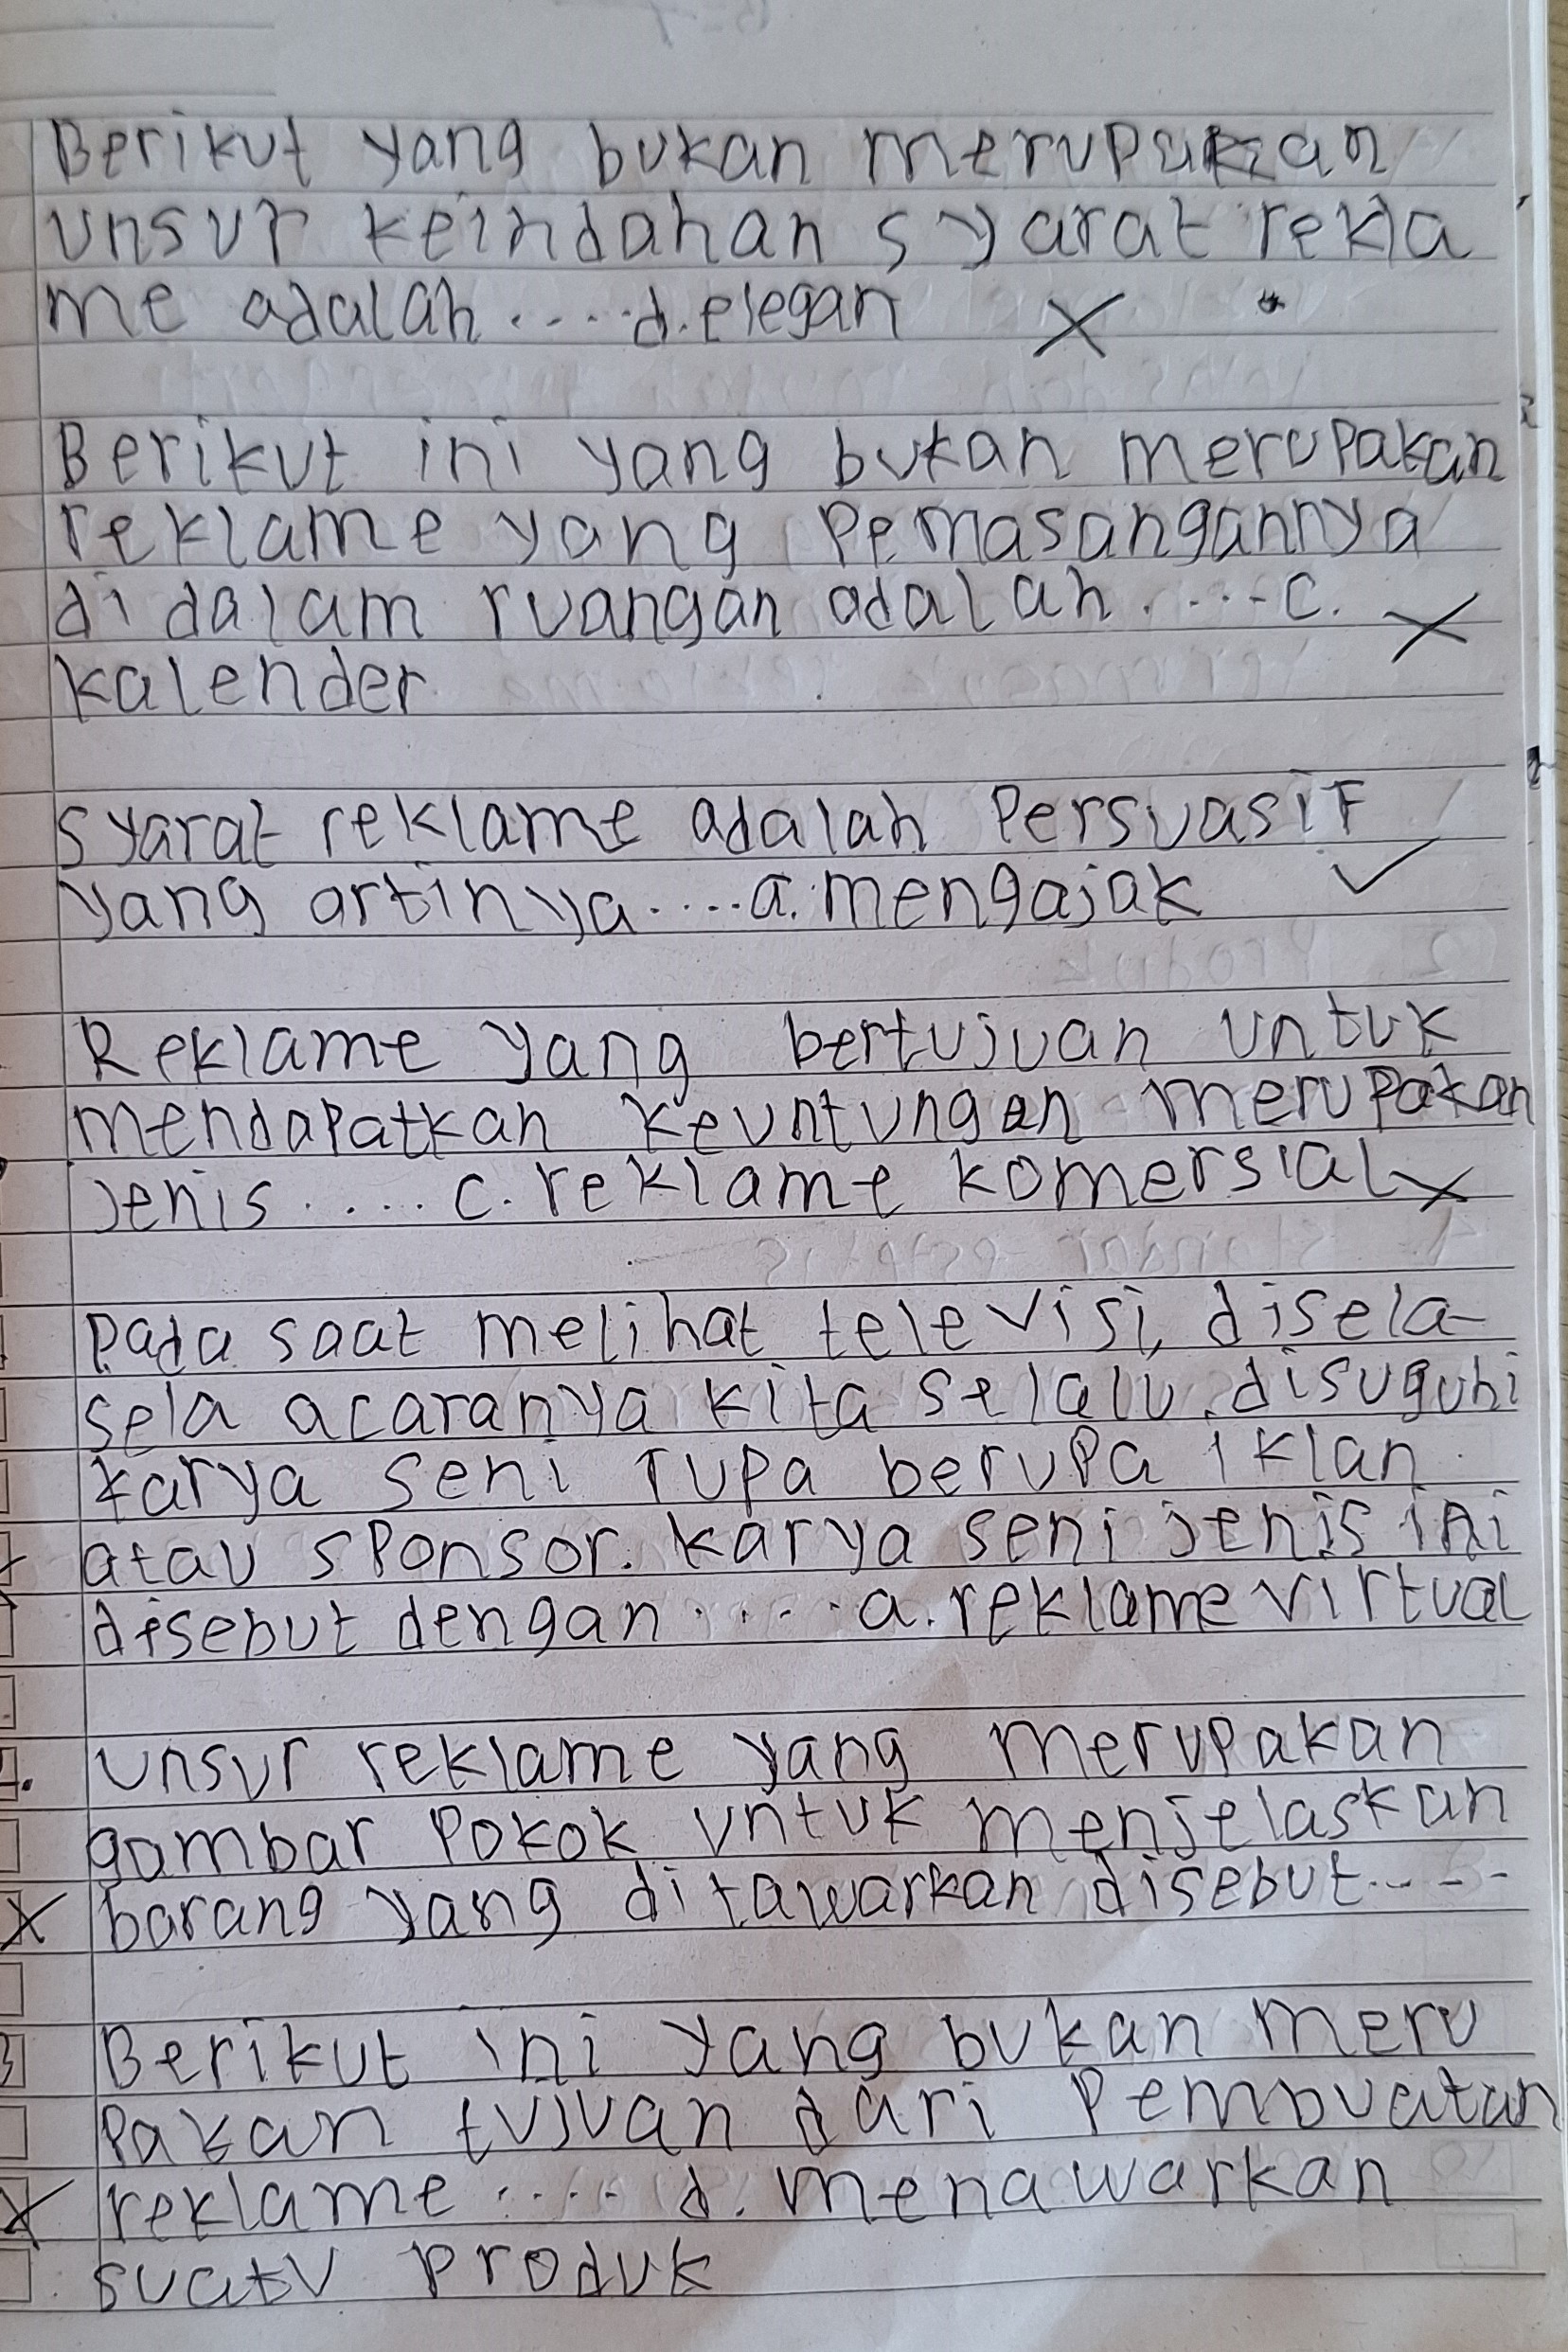 Berikut yang bukan merupakan
unsur keindahan syarat rekla
me adalah.....d.elegan X
Berikut ini yang bukan merupakan
reklame yang pemasangannya
di dalam ruangan adalah.....c. X
kalender
syarat reklame adalah Persuasif
yang artinya.....a.mengajak ✓
Reklame yang bertujuan untuk
mendapatkan keuntungan merupakan
jenis.....c.reklame komersial X
Pada saat melihat televisi, disela-
sela acaranya kita selalu disuguhi
karya seni rupa berupa iklan
atau sponsor. karya seni jenis ini
disebut dengan.....a.reklame virtual
unsur reklame yang merupakan
gambar pokok untuk menjelaskan
X barang yang ditawarkan disebut.....
Berikut ini yang bukan meru
pakan tujuan dari pembuatan
X reklame.....d.menawarkan
suatu produk